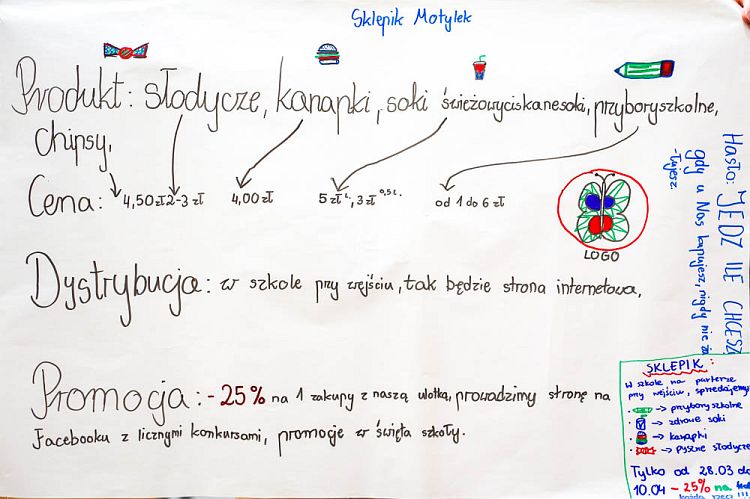 Sklepik Motylek
Produkt: słodycze, kanapki, soki świeżowyciskane soki, przybory szkolne,
chipsy,
Cena: 4,50 zł 2-3 zł 4,00 zł 5 zł L, 3 zł 0,5 L. od 1 do 6 zł
LOGO
Dystrybucja: w szkole przy wejściu, tak będzie strona internetowa,
Promocja: -25% na 1 zakupy z naszą ulotką, prowadzimy stronę na
Facebooku z licznymi konkursami, promocje w święta szkoły.
Hasło: JEDZ ILE CHCESZ
gdy u Nas kupujesz, nigdy nie
-Tyjesz
SKLEPIK:
W szkole na parterze
przy wejściu, sprzedajemy
→ przybory szkolne
→ zdrowe soki
→ kanapki
→ pyszne słodycze
Tylko od 28.03 do
10.04 -25% na